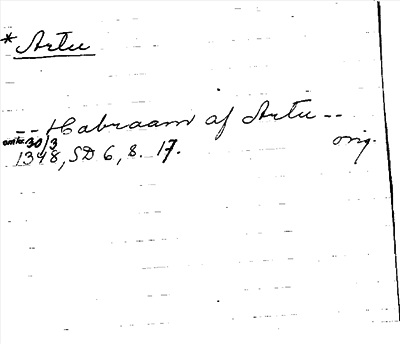 * Artu
-- Habraam af Artu --
omkr. 30/3 orig.
1348, SD 6, s. 17.